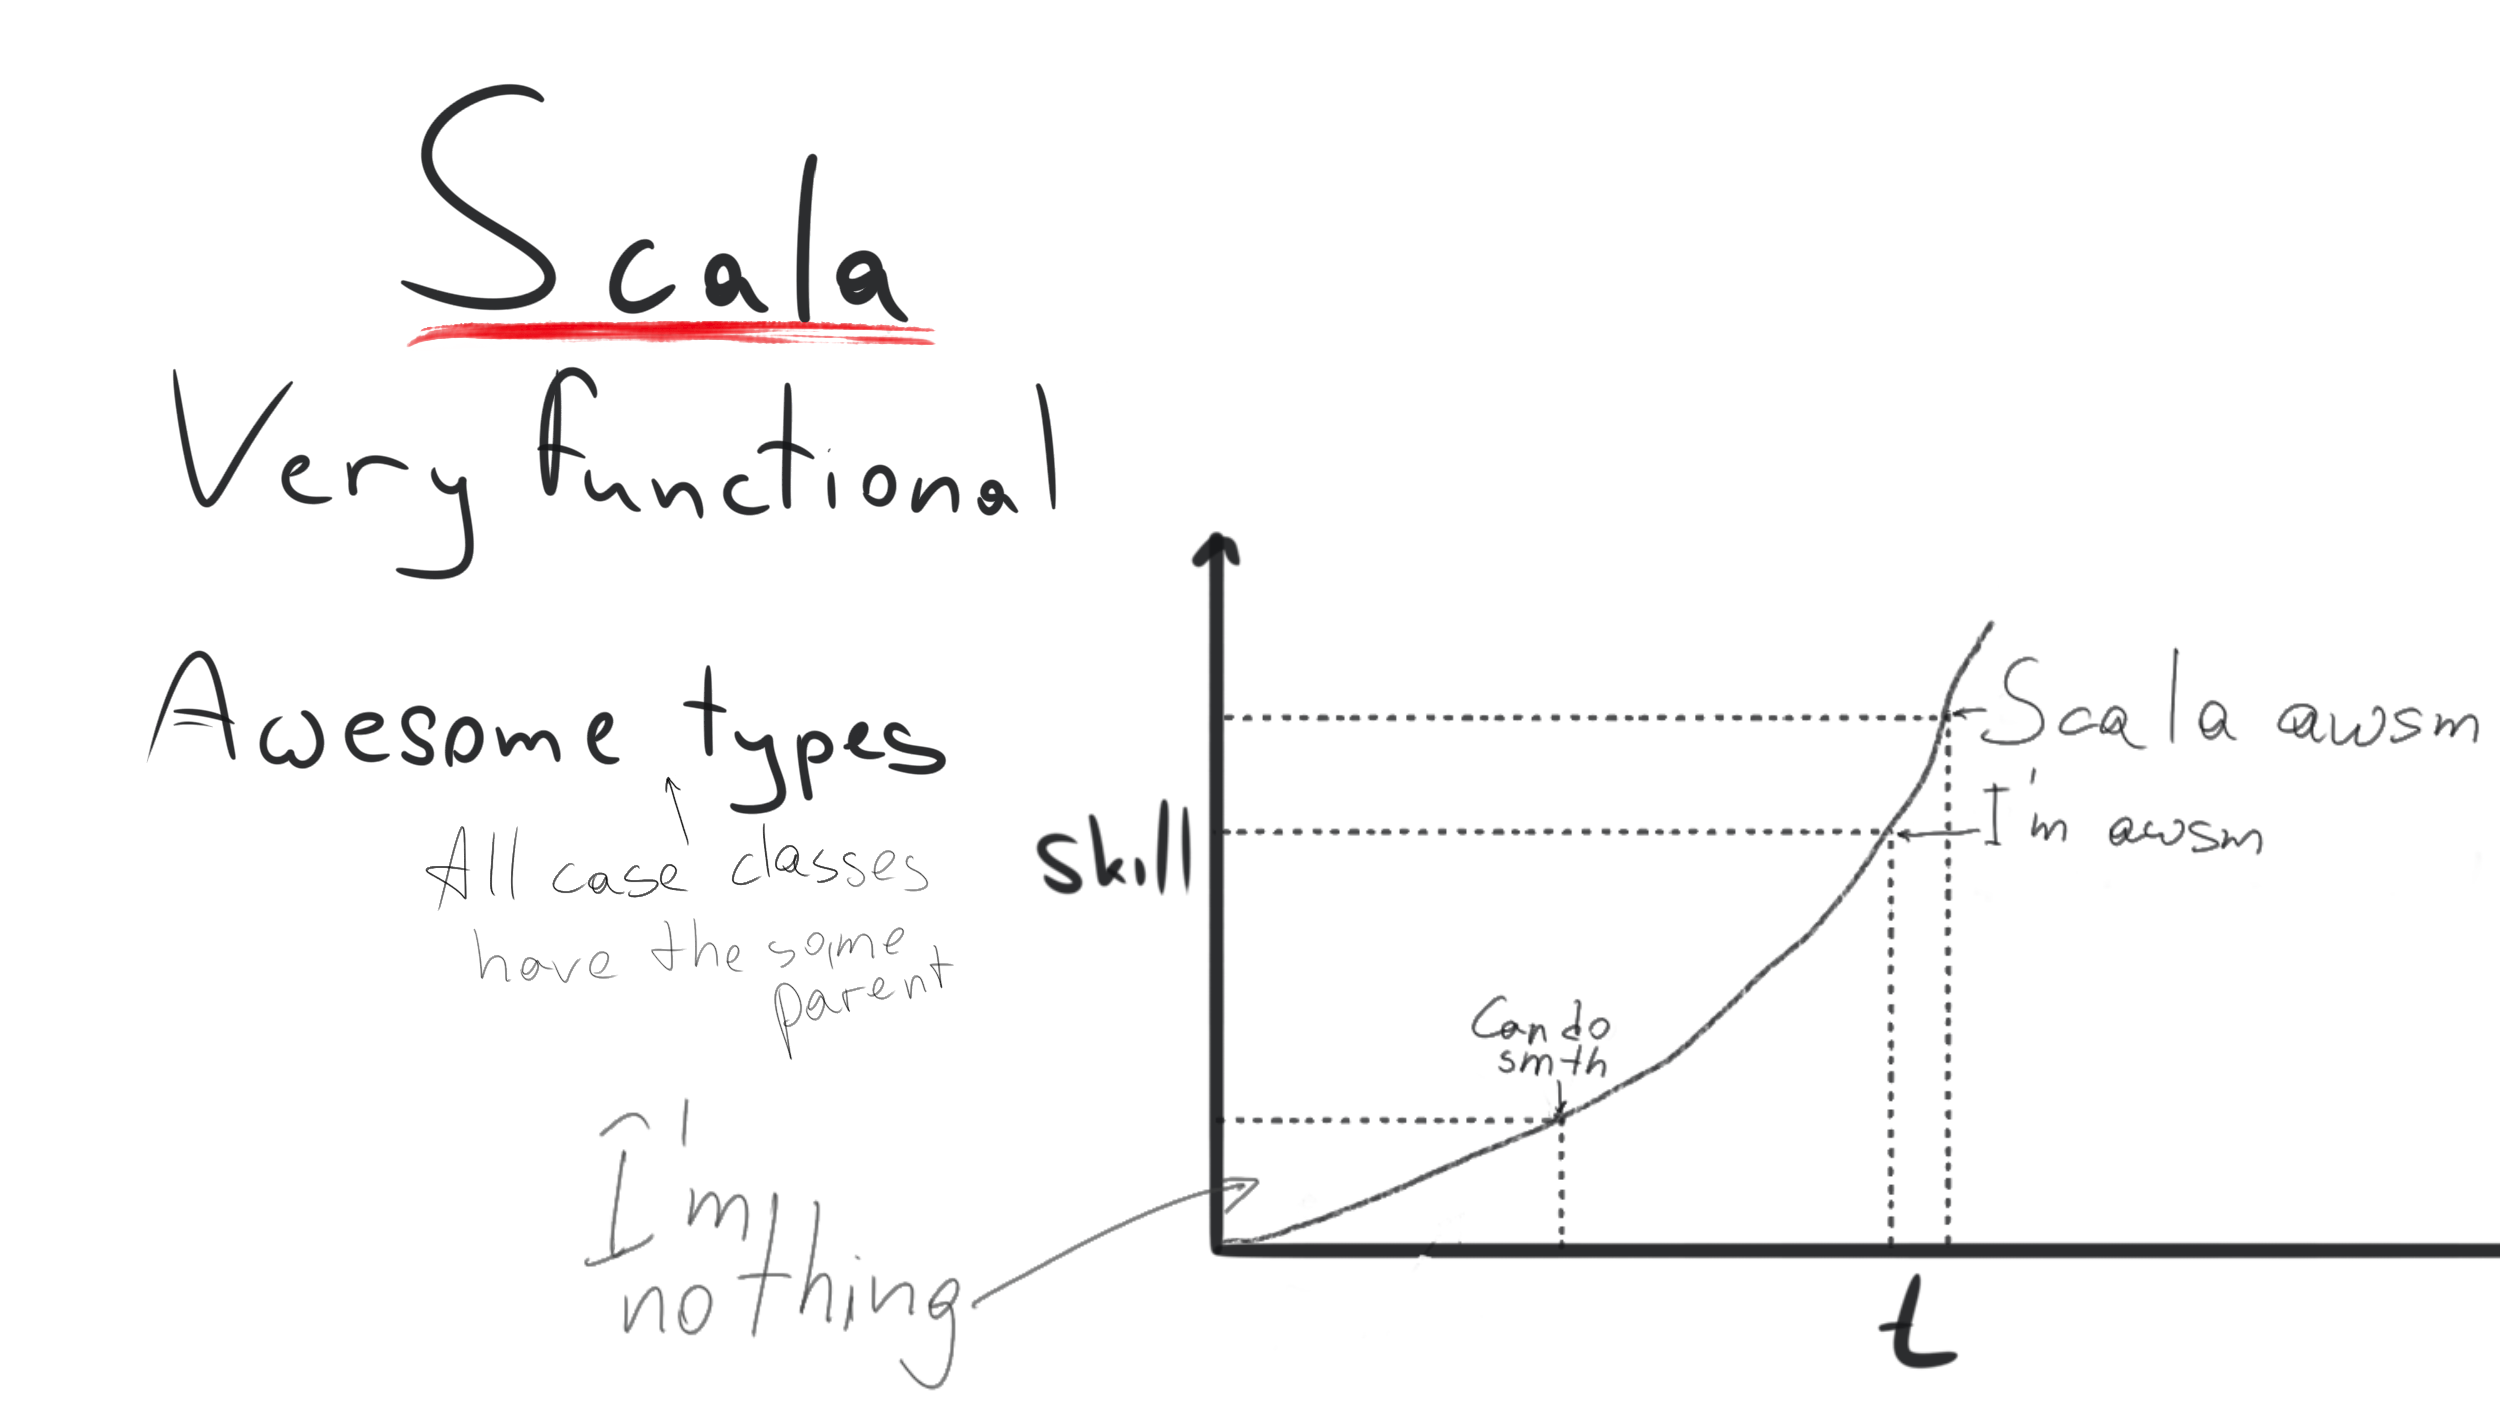 Scala
Very functional
Awesome types
All case classes
have the same
parent
I'm
nothing
skill
Can do
smth
Scala awsm
I'm awsm
t